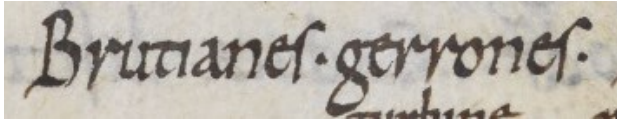 Brutianes· gerrones·